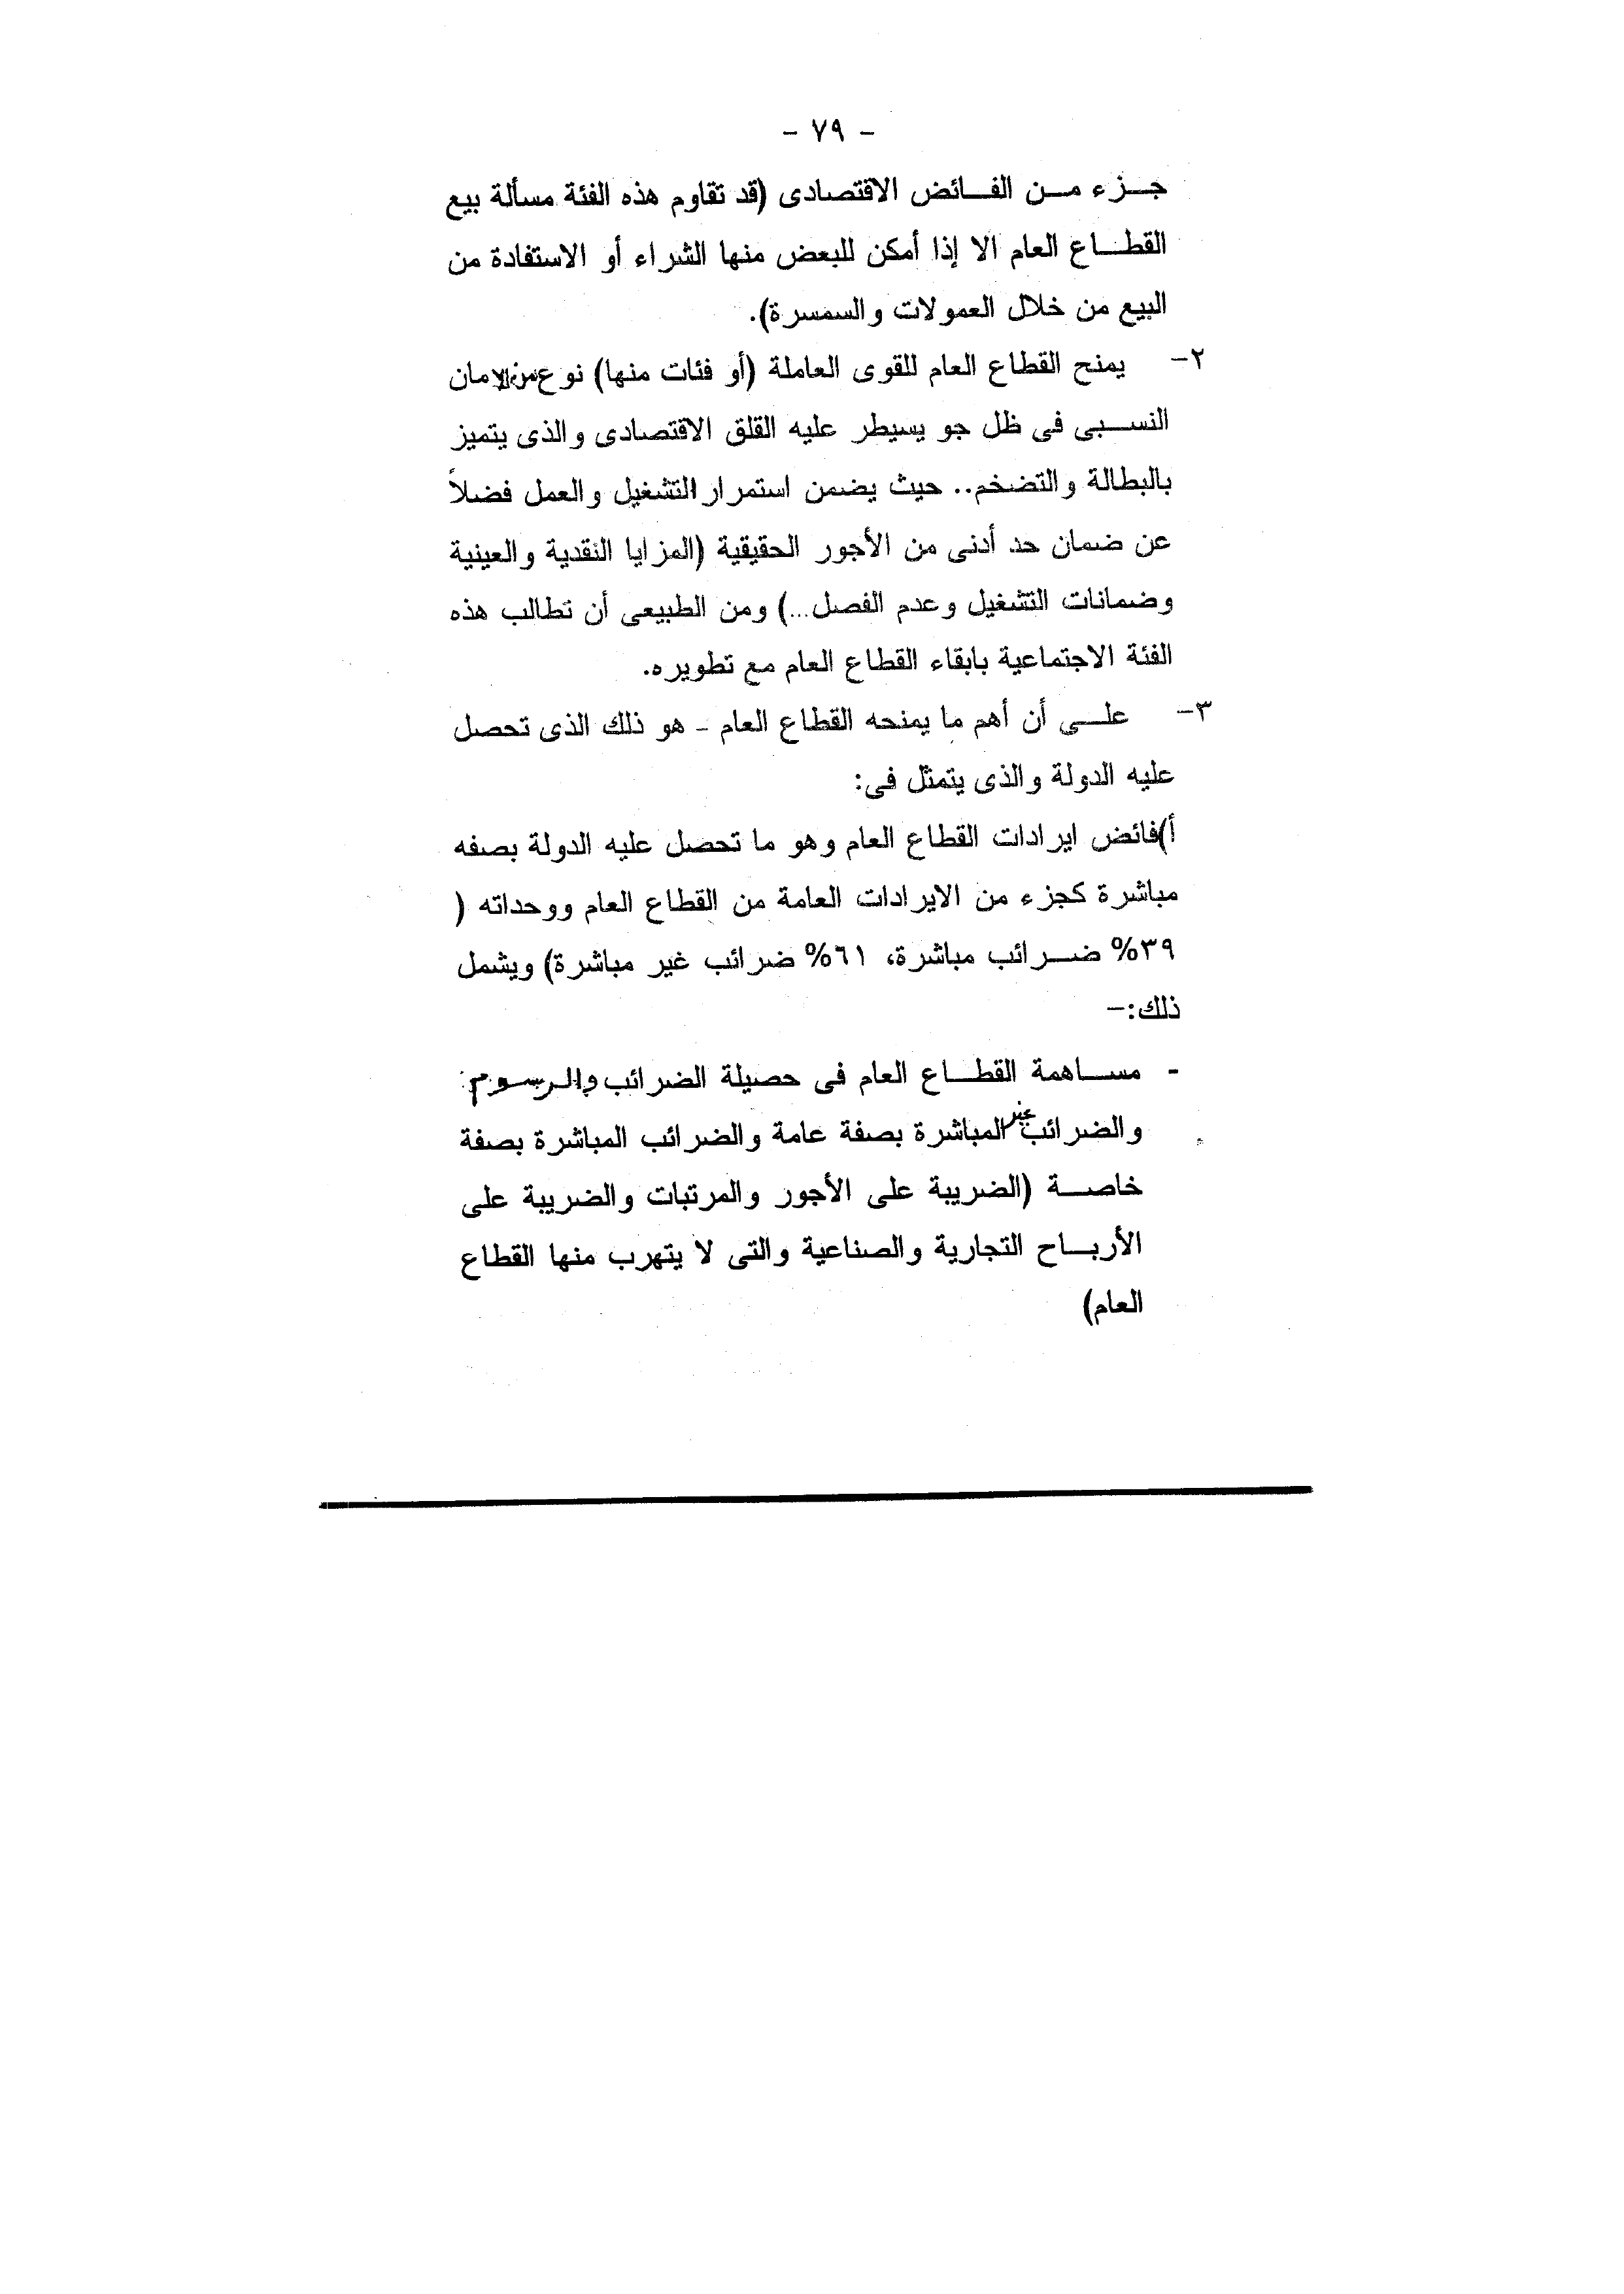 - ٧٩ -
جزء من الفائض الاقتصادى (قد تقاوم هذه الفئة مسألة بيع
القطاع العام الا إذا أمكن للبعض منها الشراء أو الاستفادة من
البيع من خلال العمولات والسمسرة).
٢- يمنح القطاع العام للقوى العاملة (أو فئات منها) نوع من الامان
النسبى فى ظل جو يسيطر عليه القلق الاقتصادى والذى يتميز
بالبطالة والتضخم.. حيث يضمن استمرار التشغيل والعمل فضلاً
عن ضمان حد أدنى من الأجور الحقيقية (المزايا النقدية والعينية
وضمانات التشغيل وعدم الفصل...) ومن الطبيعى أن تطالب هذه
الفئة الاجتماعية بابقاء القطاع العام مع تطويره.
٣- على أن أهم ما يمنحه القطاع العام - هو ذلك الذى تحصل
عليه الدولة والذى يتمثل فى:
أ)فائض ايرادات القطاع العام وهو ما تحصل عليه الدولة بصفه
مباشرة كجزء من الايرادات العامة من القطاع العام ووحداته (
٣٩% ضرائب مباشرة، ٦١% ضرائب غير مباشرة) ويشمل
ذلك:-
- مساهمة القطاع العام فى حصيلة الضرائب والرسوم
والضرائب غير المباشرة بصفة عامة والضرائب المباشرة بصفة
خاصة (الضريبة على الأجور والمرتبات والضريبة على
الأرباح التجارية والصناعية والتى لا يتهرب منها القطاع
العام)